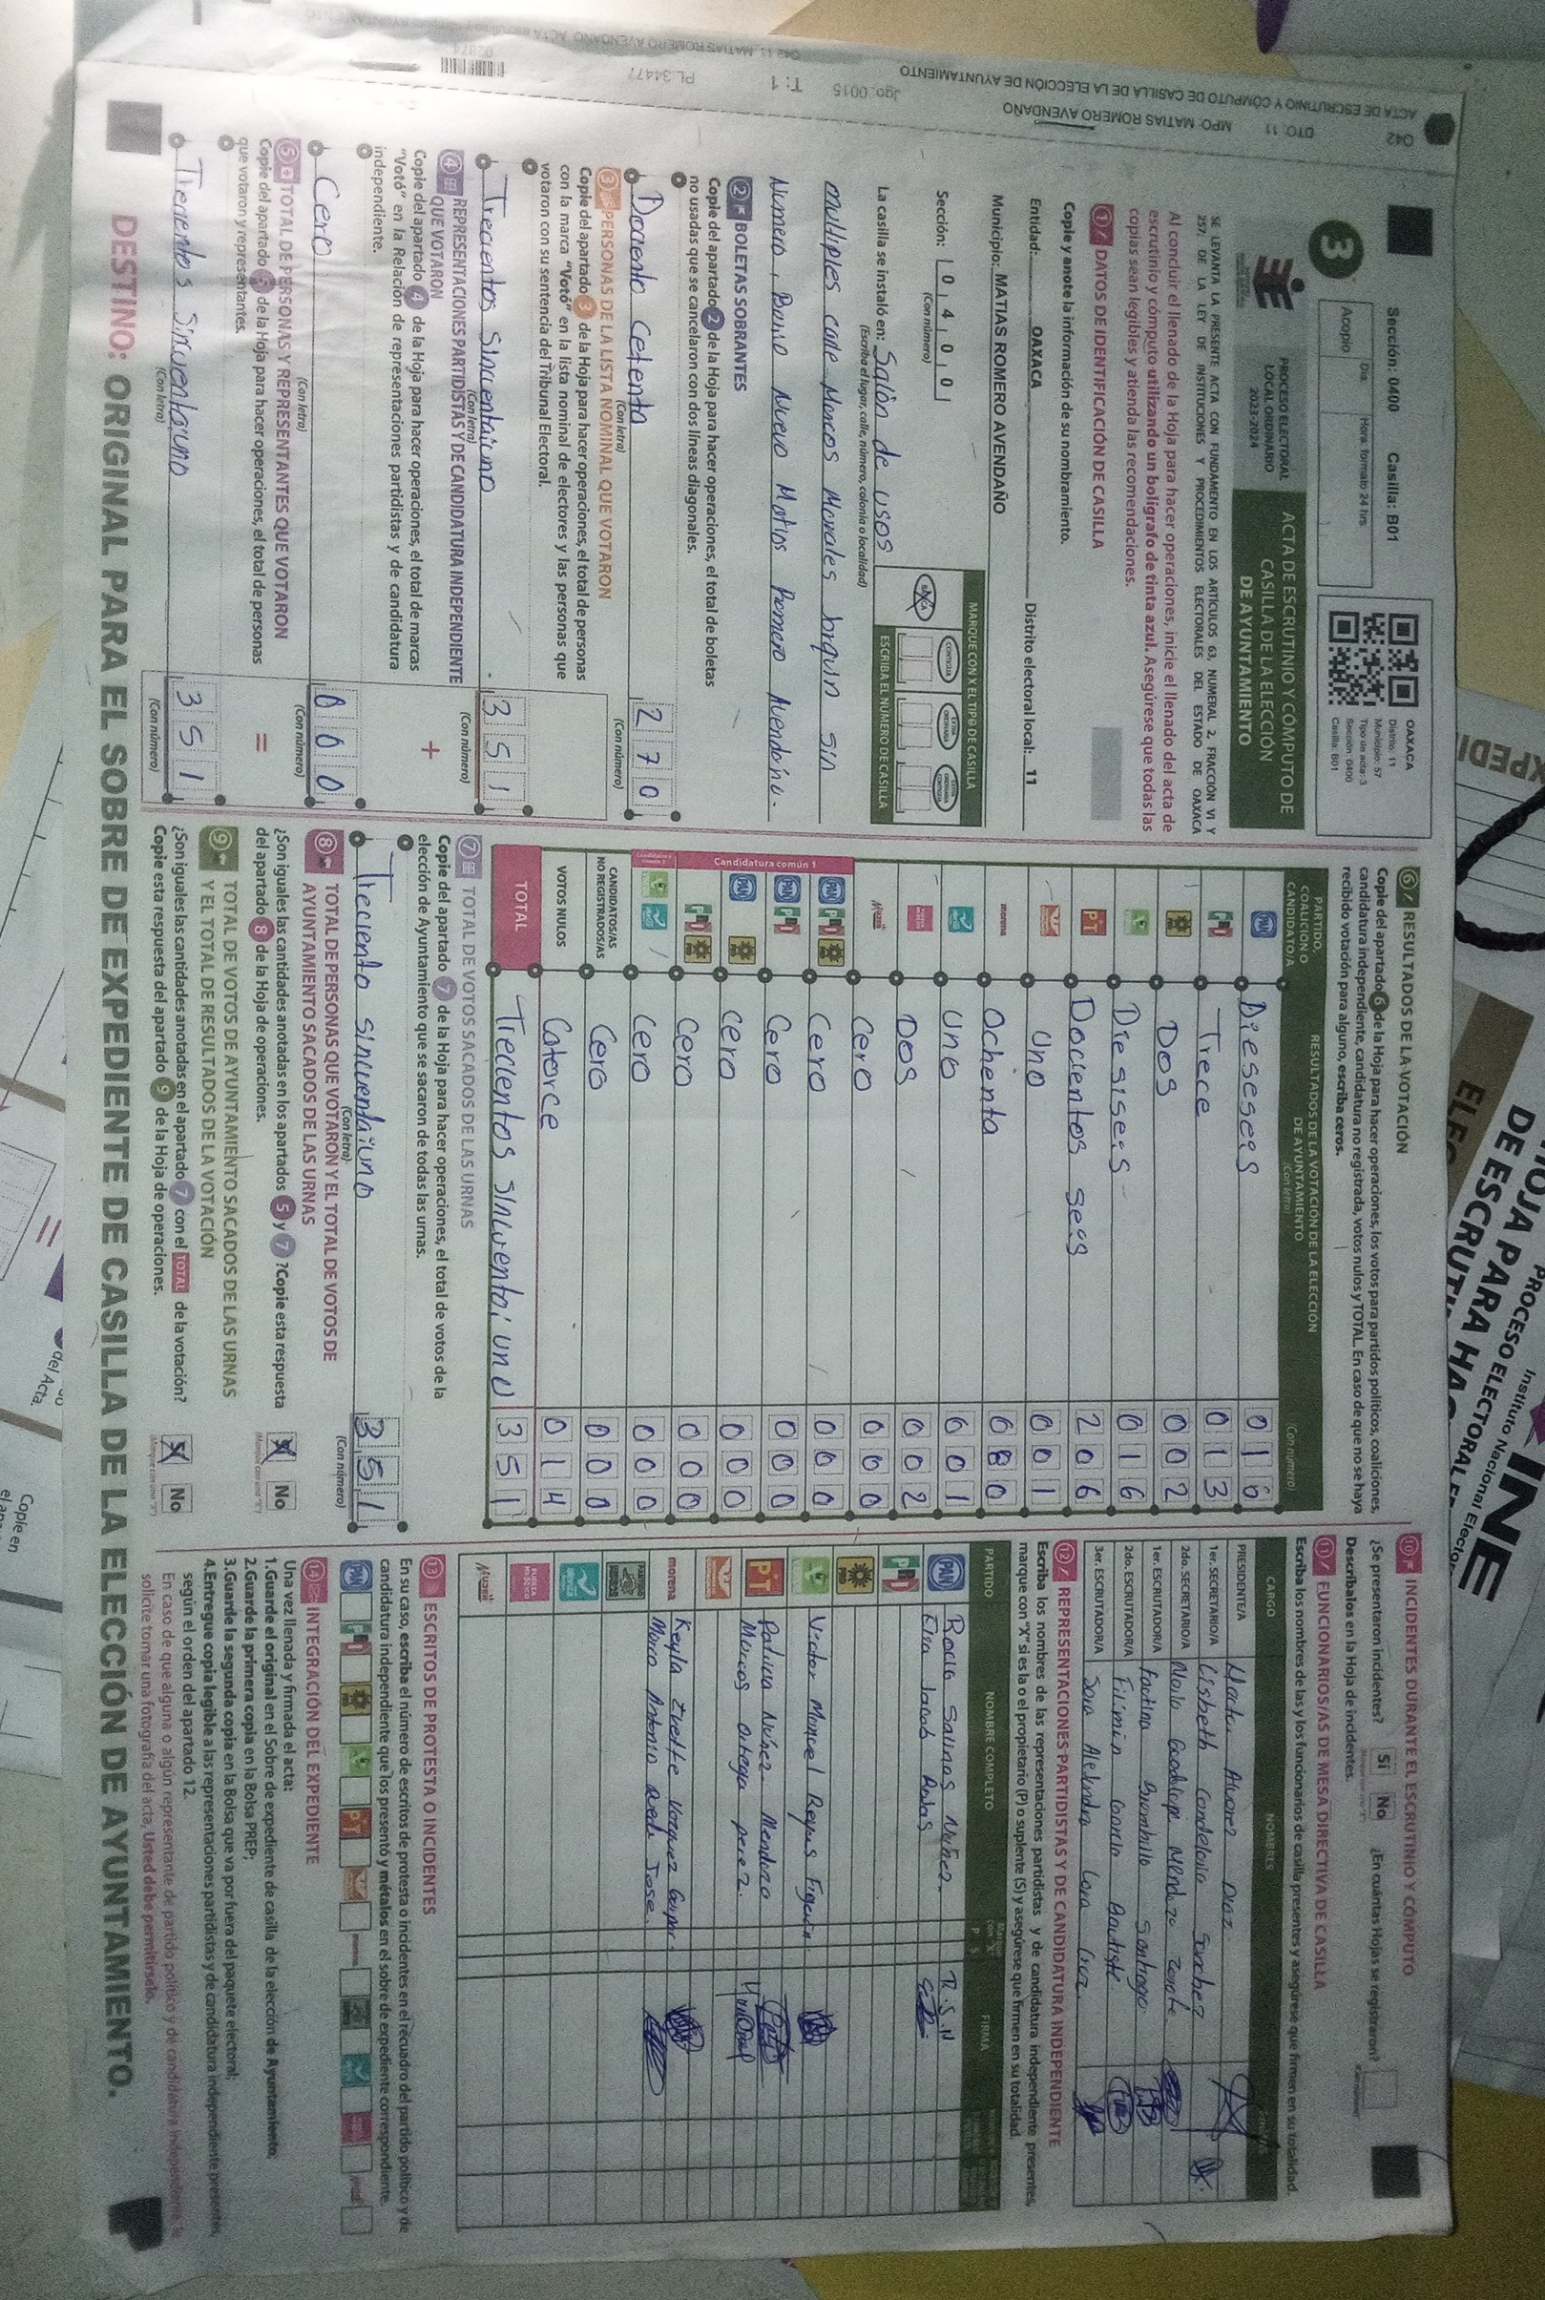 Sección: 0400 Casilla: B01
3
Acopio
Día:
Hora: formato 24 hrs
OAXACA
Distrito: 11
Municipio: 57
Tipo de acta: 3
Sección: 0400
Casilla: B01
PROCESO ELECTORAL
LOCAL ORDINARIO
2023-2024
ACTA DE ESCRUTINIO Y CÓMPUTO DE
CASILLA DE LA ELECCIÓN
DE AYUNTAMIENTO
SE LEVANTA LA PRESENTE ACTA CON FUNDAMENTO EN LOS ARTÍCULOS 63, NUMERAL 2, FRACCIÓN VI Y
257, DE LA LEY DE INSTITUCIONES Y PROCEDIMIENTOS ELECTORALES DEL ESTADO DE OAXACA
Al concluir el llenado de la Hoja para hacer operaciones, inicie el llenado del acta de
escrutinio y cómputo utilizando un bolígrafo de tinta azul. Asegúrese que todas las
copias sean legibles y atienda las recomendaciones.
1 DATOS DE IDENTIFICACIÓN DE CASILLA
Copie y anote la información de su nombramiento.
Entidad: OAXACA Distrito electoral local: 11
Municipio: MATIAS ROMERO AVENDAÑO
Sección: 0 4 0 0
(Con número)
MARQUE CON X EL TIPO DE CASILLA
BÁSICA CONTIGUA
ESCRIBA EL NÚMERO DE CASILLA
La casilla se instaló en: Salón de usos
(Escriba el lugar, calle, número, colonia o localidad)
multiples calle Marcos Morales Jorquin sin
Numero, Barrio Nuevo Matias Romero Avendaño.
2 BOLETAS SOBRANTES
Copie del apartado 2 de la Hoja para hacer operaciones, el total de boletas
no usadas que se cancelaron con dos líneas diagonales.
Dociento Cetenta 2 7 0
(Con letra) (Con número)
3 PERSONAS DE LA LISTA NOMINAL QUE VOTARON
Copie del apartado 3 de la Hoja para hacer operaciones, el total de personas
con la marca "Votó" en la lista nominal de electores y las personas que
votaron con su sentencia del Tribunal Electoral.
Trecientos Sincuentaiuno 3 5 1
(Con letra) (Con número)
4 REPRESENTACIONES PARTIDISTAS Y DE CANDIDATURA INDEPENDIENTE
QUE VOTARON
Copie del apartado 4 de la Hoja para hacer operaciones, el total de marcas
"Votó" en la Relación de representaciones partidistas y de candidatura
independiente.
+
Cero 0 0 0
(Con letra) (Con número)
5 TOTAL DE PERSONAS Y REPRESENTANTES QUE VOTARON
Copie del apartado 5 de la Hoja para hacer operaciones, el total de personas
que votaron y representantes.
=
Treciento s Sincuentaiuno 3 5 1
(Con letra) (Con número)
6 RESULTADOS DE LA VOTACIÓN
Copie del apartado 6 de la Hoja para hacer operaciones, los votos para partidos políticos, coaliciones,
candidatura independiente, candidatura no registrada, votos nulos y TOTAL. En caso de que no se haya
recibido votación para alguno, escriba ceros.
PARTIDO, COALICIÓN O CANDIDATO/A
RESULTADOS DE LA VOTACIÓN DE LA ELECCIÓN
DE AYUNTAMIENTO
(Con letra) (Con número)
PAN Diesesees 0 1 6
PRI Trece 0 1 3
PRD Dos 0 0 2
Diesisees 0 1 6
PT Docientos sees 2 0 6
Uno 0 0 1
morena Ochenta 0 8 0
Uno 0 0 1
Dos 0 0 2
Cero 0 0 0
Candidatura común 1
PAN PRI PRD Cero 0 0 0
PAN PRI Cero 0 0 0
PAN PRD cero 0 0 0
PRI PRD Cero 0 0 0
Cero 0 0 0
CANDIDATOS/AS
NO REGISTRADOS/AS Cero 0 0 0
VOTOS NULOS Catorce 0 1 4
TOTAL Trecientos sincuentaiuno 3 5 1
7 TOTAL DE VOTOS SACADOS DE LAS URNAS
Copie del apartado 7 de la Hoja para hacer operaciones, el total de votos de la
elección de Ayuntamiento que se sacaron de todas las urnas.
Treciento sincuentaiuno 3 5 1
(Con letra) (Con número)
8 TOTAL DE PERSONAS QUE VOTARON Y EL TOTAL DE VOTOS DE
AYUNTAMIENTO SACADOS DE LAS URNAS
¿Son iguales las cantidades anotadas en los apartados 5 y 7 ? Copie esta respuesta
del apartado 8 de la Hoja de operaciones.
Sí No
9 TOTAL DE VOTOS DE AYUNTAMIENTO SACADOS DE LAS URNAS
Y EL TOTAL DE RESULTADOS DE LA VOTACIÓN
¿Son iguales las cantidades anotadas en el apartado 7 con el TOTAL de la votación?
Copie esta respuesta del apartado 9 de la Hoja de operaciones.
Sí No
10 INCIDENTES DURANTE EL ESCRUTINIO Y CÓMPUTO
¿Se presentaron incidentes? Sí No ¿En cuántas Hojas se registraron?
Descríbalos en la Hoja de incidentes.
11 FUNCIONARIOS/AS DE MESA DIRECTIVA DE CASILLA
Escriba los nombres de las y los funcionarios de casilla presentes y asegúrese que firmen en su totalidad.
CARGO NOMBRES
PRESIDENTE/A
1er. SECRETARIO/A Lisbeth Candelaria Sanchez
2do. SECRETARIO/A
1er. ESCRUTADOR/A
2do. ESCRUTADOR/A
3er. ESCRUTADOR/A
12 REPRESENTACIONES PARTIDISTAS Y DE CANDIDATURA INDEPENDIENTE
Escriba los nombres de las representaciones partidistas y de candidatura independiente presentes,
marque con "X" si es la o el propietario (P) o suplente (S) y asegúrese que firmen en su totalidad.
PARTIDO NOMBRE COMPLETO P S FIRMA
PAN Rocio Salinas Nuñez. R.S.N
PRI
PRD
Victor Manuel Reyes
PT
Marcos Ortega perez.
morena Keyla Ivette Vazquez
Marco Antonio
13 ESCRITOS DE PROTESTA O INCIDENTES
En su caso, escriba el número de escritos de protesta o incidentes en el recuadro del partido político y de
candidatura independiente que los presentó y métalos en el sobre de expediente correspondiente.
14 INTEGRACIÓN DEL EXPEDIENTE
Una vez llenada y firmada el acta:
1.Guarde el original en el Sobre de expediente de casilla de la elección de Ayuntamiento;
2.Guarde la primera copia en la Bolsa PREP;
3.Guarde la segunda copia en la Bolsa que va por fuera del paquete electoral;
4.Entregue copia legible a las representaciones partidistas y de candidatura independiente presentes,
según el orden del apartado 12.
En caso de que alguna o algún representante de partido político y de candidatura independiente, le
solicite tomar una fotografía del acta, Usted debe permitírselo.
DESTINO: ORIGINAL PARA EL SOBRE DE EXPEDIENTE DE CASILLA DE LA ELECCIÓN DE AYUNTAMIENTO.
042 DTO. 11 MPO. MATIAS ROMERO AVENDAÑO
ACTA DE ESCRUTINIO Y CÓMPUTO DE CASILLA DE LA ELECCIÓN DE AYUNTAMIENTO
Jgo. 0015 T: 1 PL.34477
INE
Instituto Nacional Electoral
PROCESO ELECTORAL
HOJA PARA HA
DE ESCRUTI
ELEC
del Acta.
Copie en